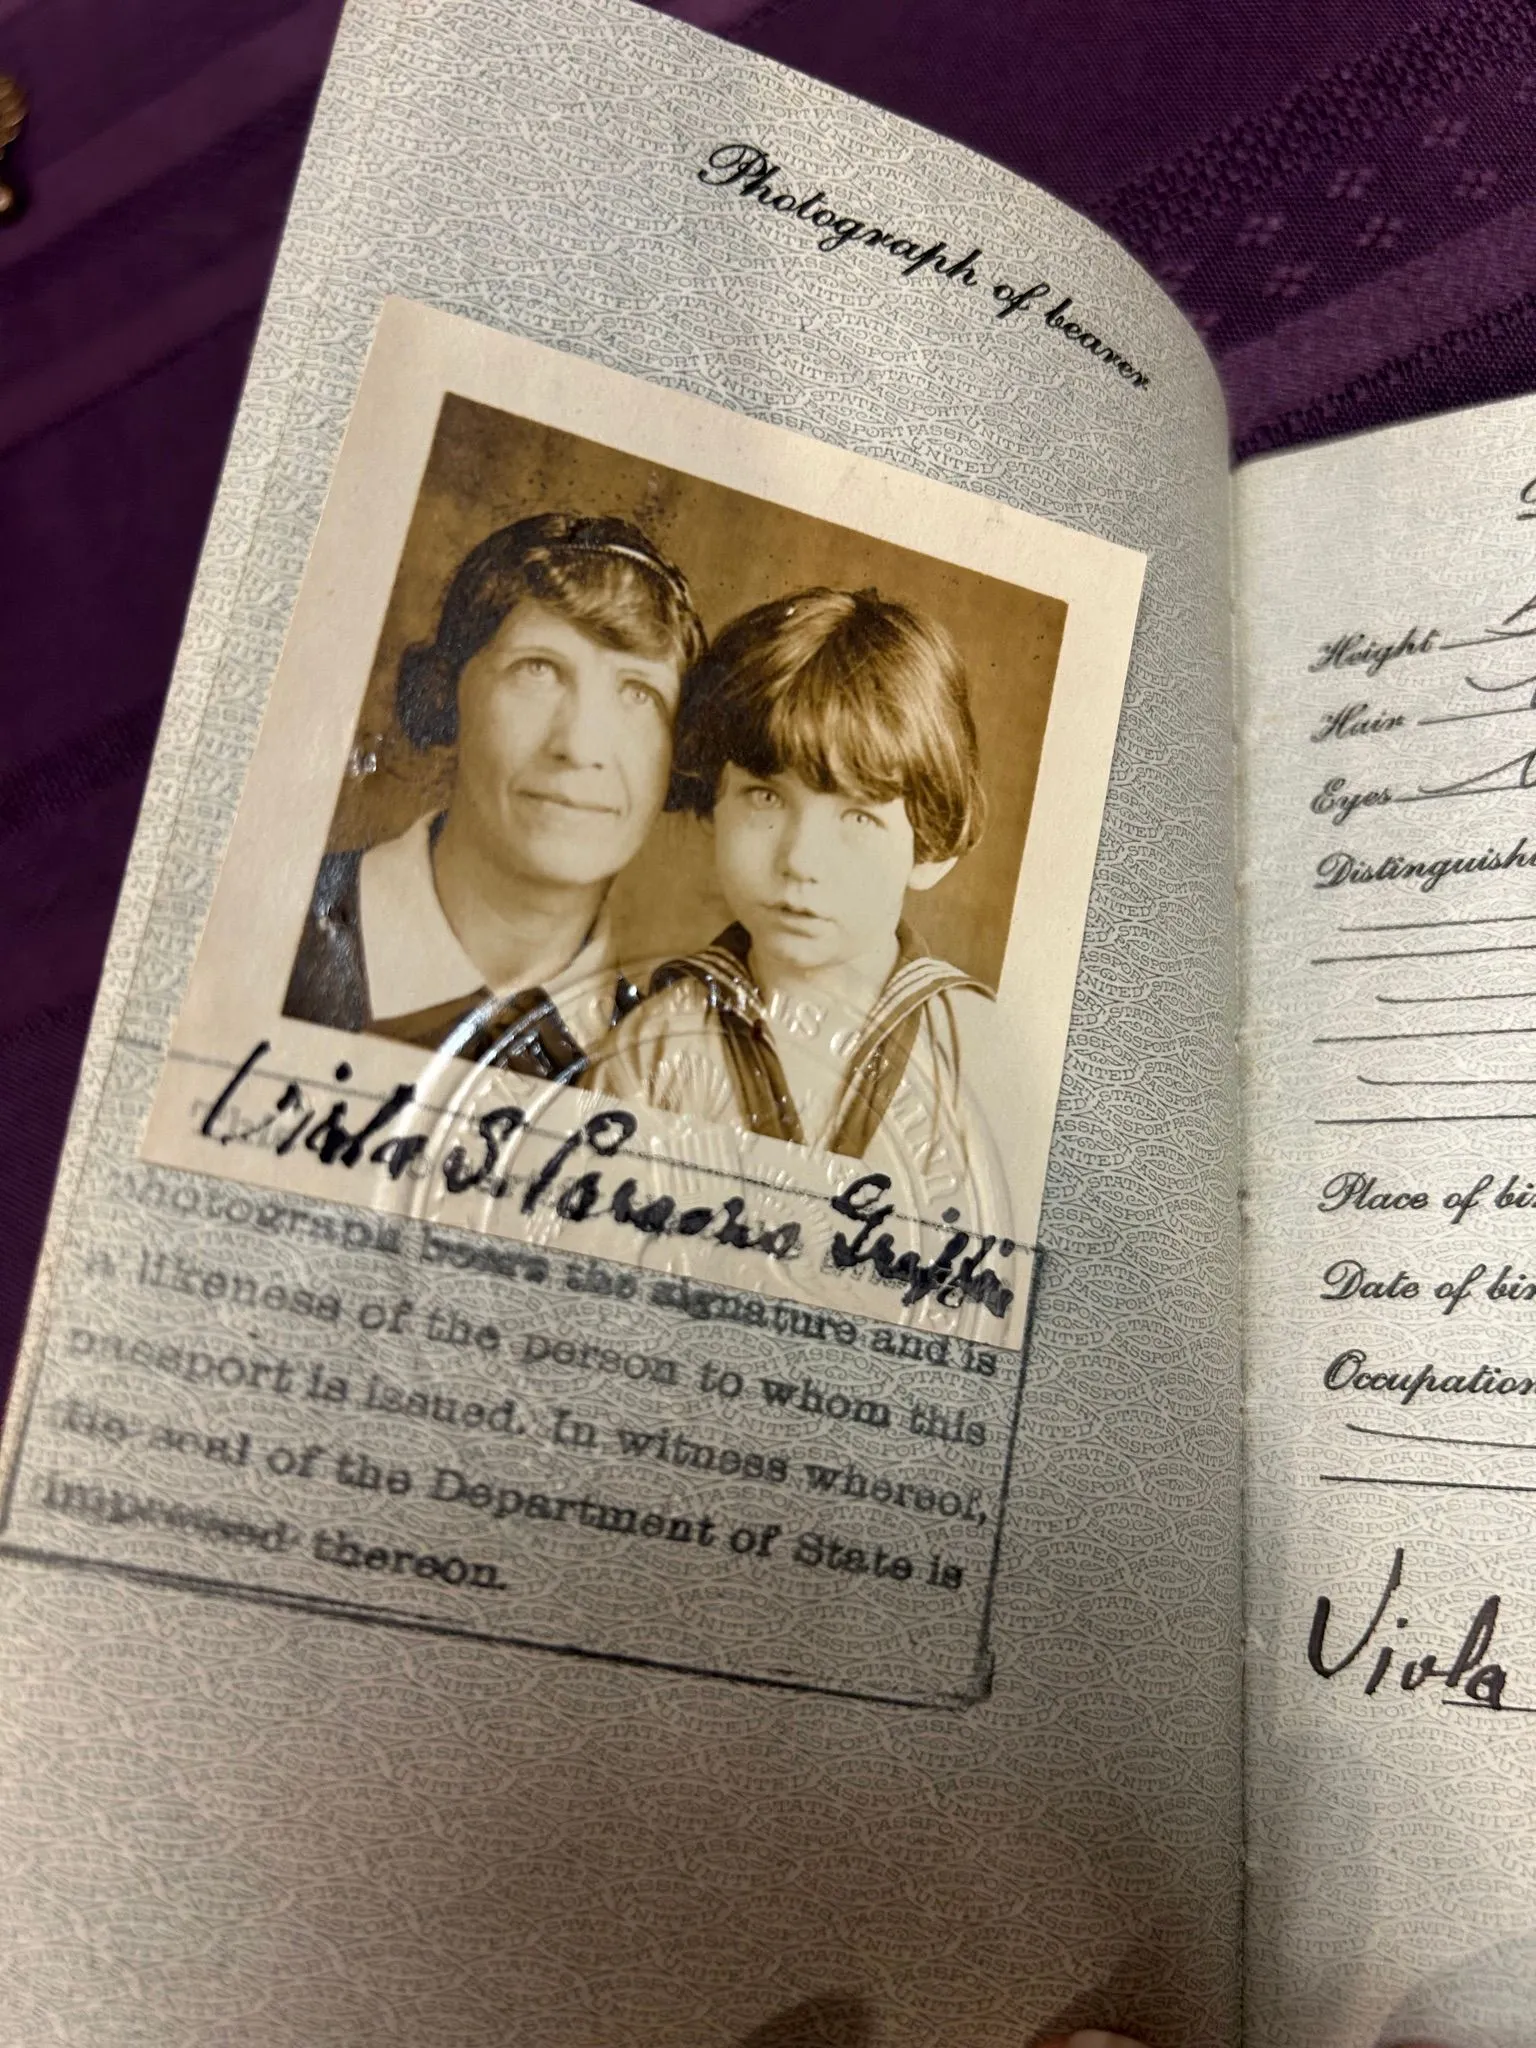 Photograph of bearer
Viola S. Parsons Griffin
photograph bears the signature and is
a likeness of the person to whom this
passport is issued. In witness whereof,
the seal of the Department of State is
impressed thereon.
Height
Hair
Eyes
Distinguishi
Place of bi
Date of bir
Occupation
Viola